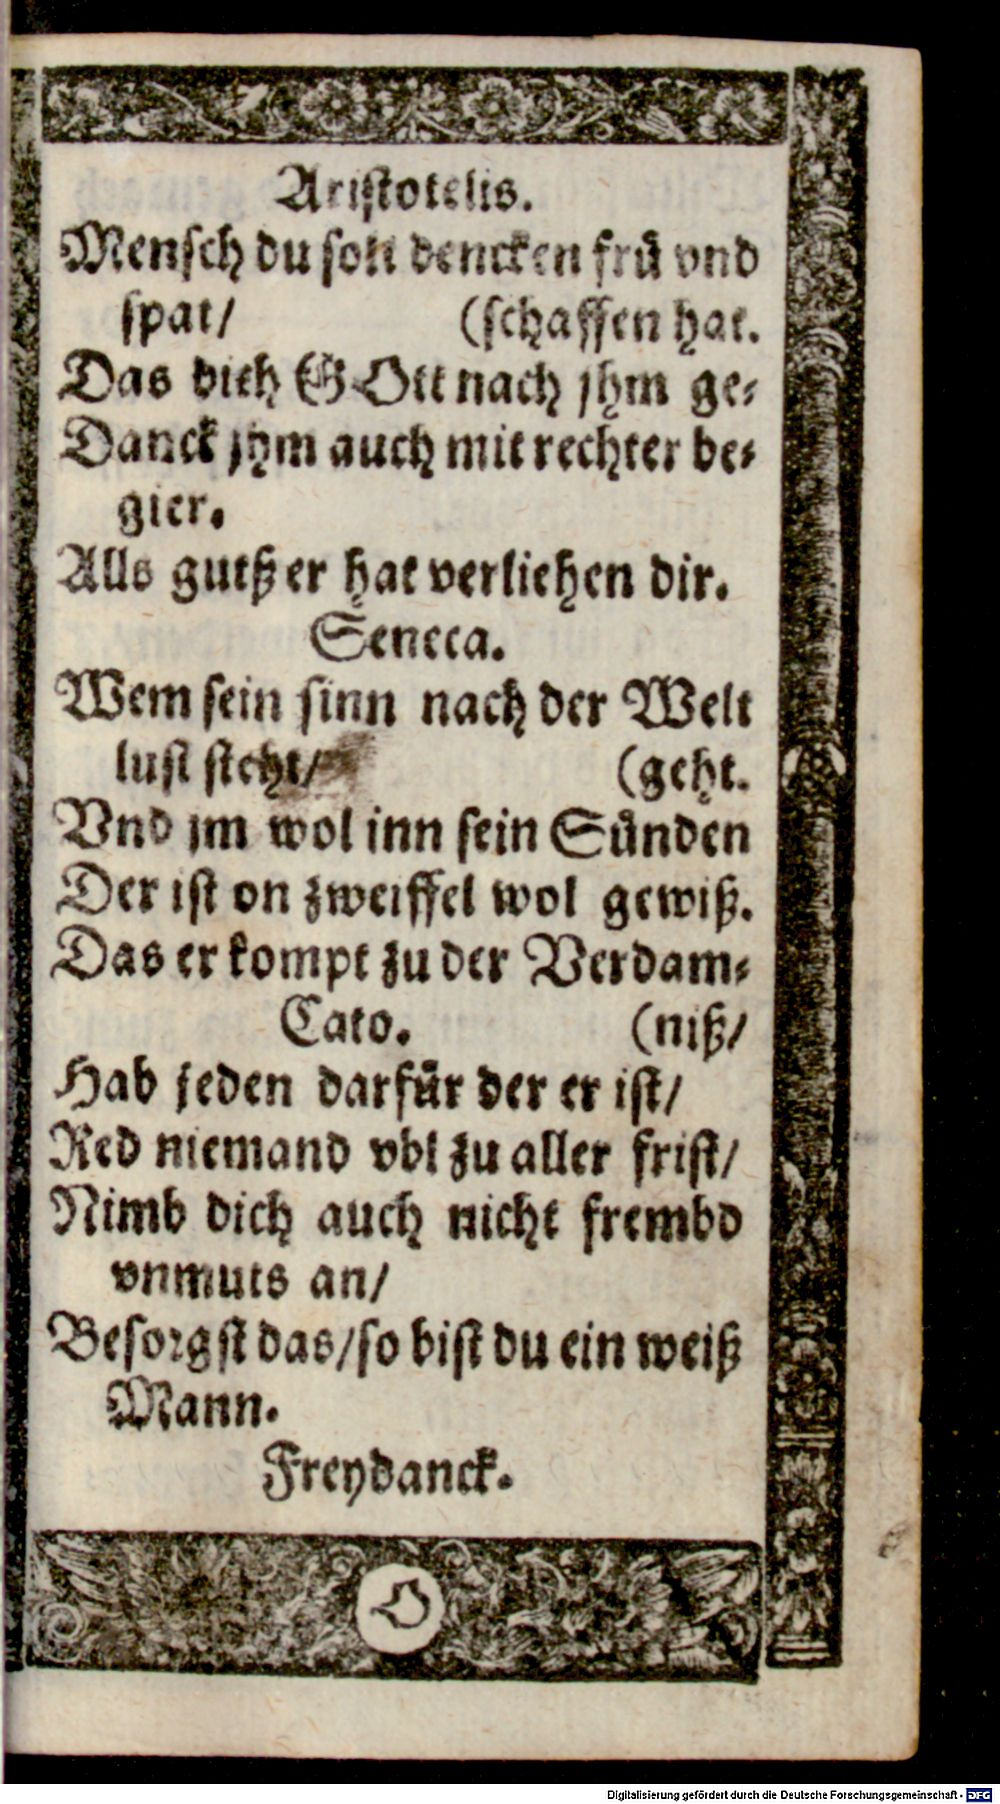 Aristotelis.
Mensch du solt dencken frů vnd
spat/ (schaffen hat.
Das dich GOtt nach jhm ge⸗
Danck jhm auch mit rechter be⸗
gier.
Alls gutß er hat verliehen dir.
Seneca.
Wem sein sinn nach der Welt
lust steht/ (geht.
Vnd jm wol inn sein Sůnden
Der ist on zweiffel wol gewiß.
Das er kompt zu der Verdam⸗
Cato. (niß/
Hab jeden darfůr der er ist/
Red niemand vbl zu aller frist/
Nimb dich auch nicht frembd
vnmuts an/
Besorgst das/so bist du ein weiß
Mann.
Freydanck.
D
Digitalisierung gefördert durch die Deutsche Forschungsgemeinschaft - DFG